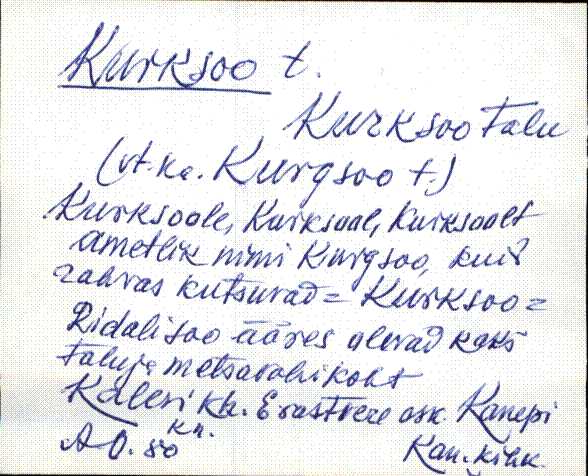 Kurksoo t.
Kurksoo Talu
(vt. ka. Kurgsoo t.)
Kurksoole, Kurksool, Kurksoolt
ametlik nimi Kurgsoo, kuid
rahvas kutsuvad = Kurksoo =
Ridalisoo ääres olevad kaks
talu ja metsavahikoht
Kaleri kn. Erastvere osk. Kanepi
kn.
A O. 80
Kan. kihk